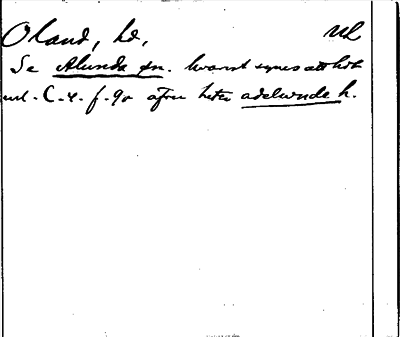 Oland, hd, ul
Se Alunda sn. hvarest synes att
url. C. 4. f. 90 åfven heter adelunde h.